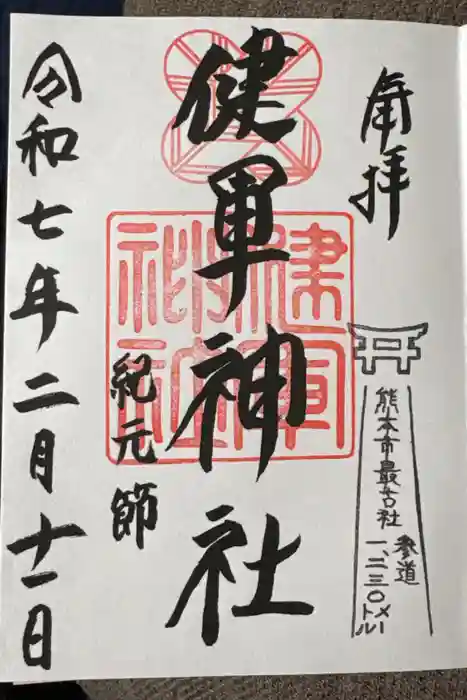 奉拝
熊本市最古社
参道
一、二三〇メートル
健軍神社
健軍神社
紀元節
令和七年二月十一日